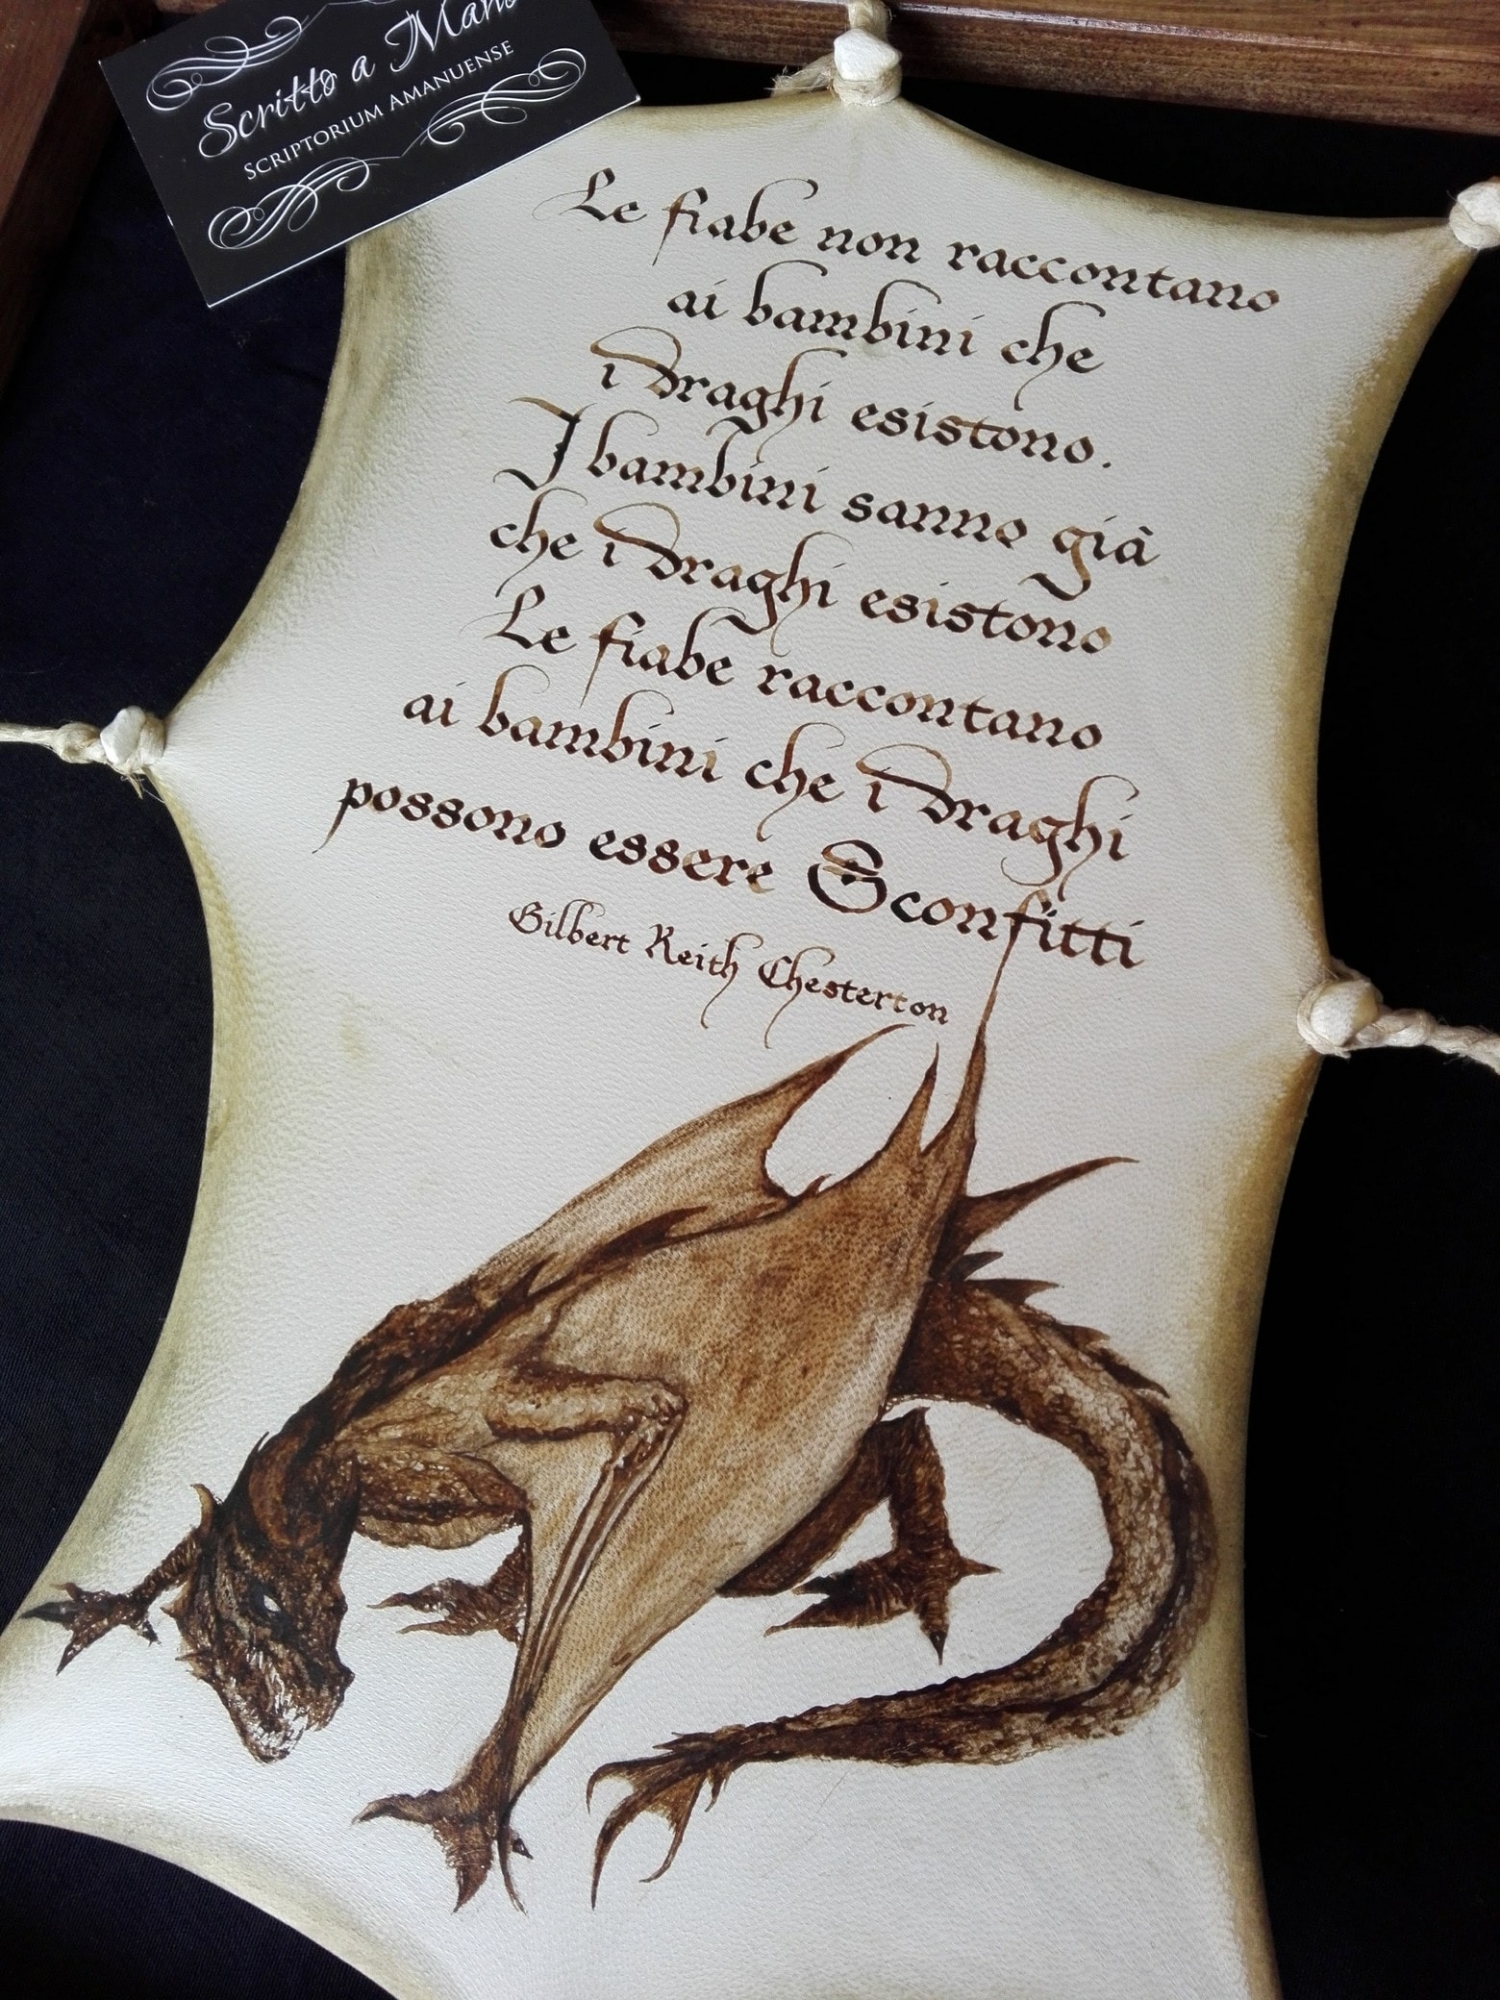 Scritto a Mano
SCRIPTORIUM AMANUENSE
Le fiabe non raccontano
ai bambini che
i draghi esistono.
I bambini sanno già
che i draghi esistono
Le fiabe raccontano
ai bambini che i draghi
possono essere Sconfitti
Gilbert Keith Chesterton